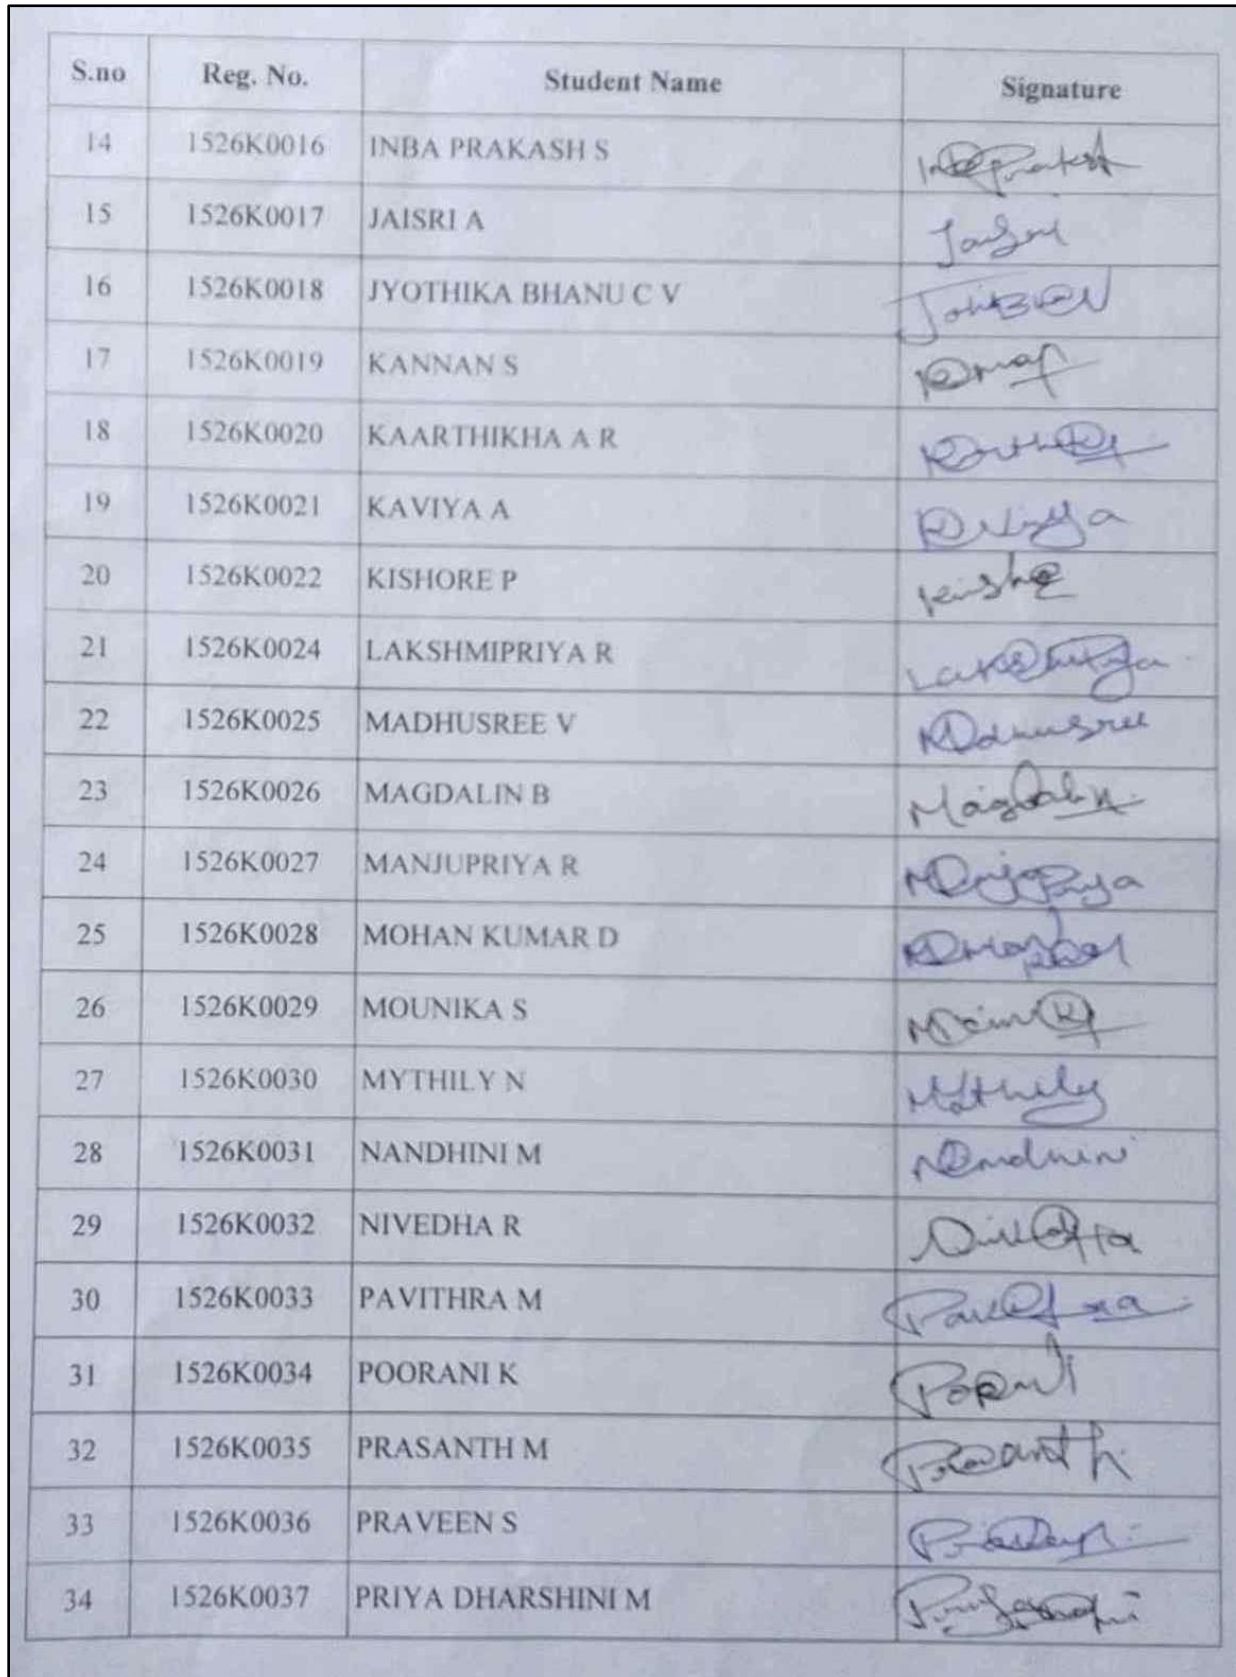 S.no Reg. No. Student Name Signature
14 1526K0016 INBA PRAKASH S
15 1526K0017 JAISRI A Jaisri
16 1526K0018 JYOTHIKA BHANU C V
17 1526K0019 KANNAN S
18 1526K0020 KAARTHIKHA A R
19 1526K0021 KAVIYA A
20 1526K0022 KISHORE P
21 1526K0024 LAKSHMIPRIYA R
22 1526K0025 MADHUSREE V
23 1526K0026 MAGDALIN B Magdalin
24 1526K0027 MANJUPRIYA R
25 1526K0028 MOHAN KUMAR D
26 1526K0029 MOUNIKA S
27 1526K0030 MYTHILY N Mythily
28 1526K0031 NANDHINI M Nandhini
29 1526K0032 NIVEDHA R
30 1526K0033 PAVITHRA M
31 1526K0034 POORANI K
32 1526K0035 PRASANTH M
33 1526K0036 PRAVEEN S
34 1526K0037 PRIYA DHARSHINI M